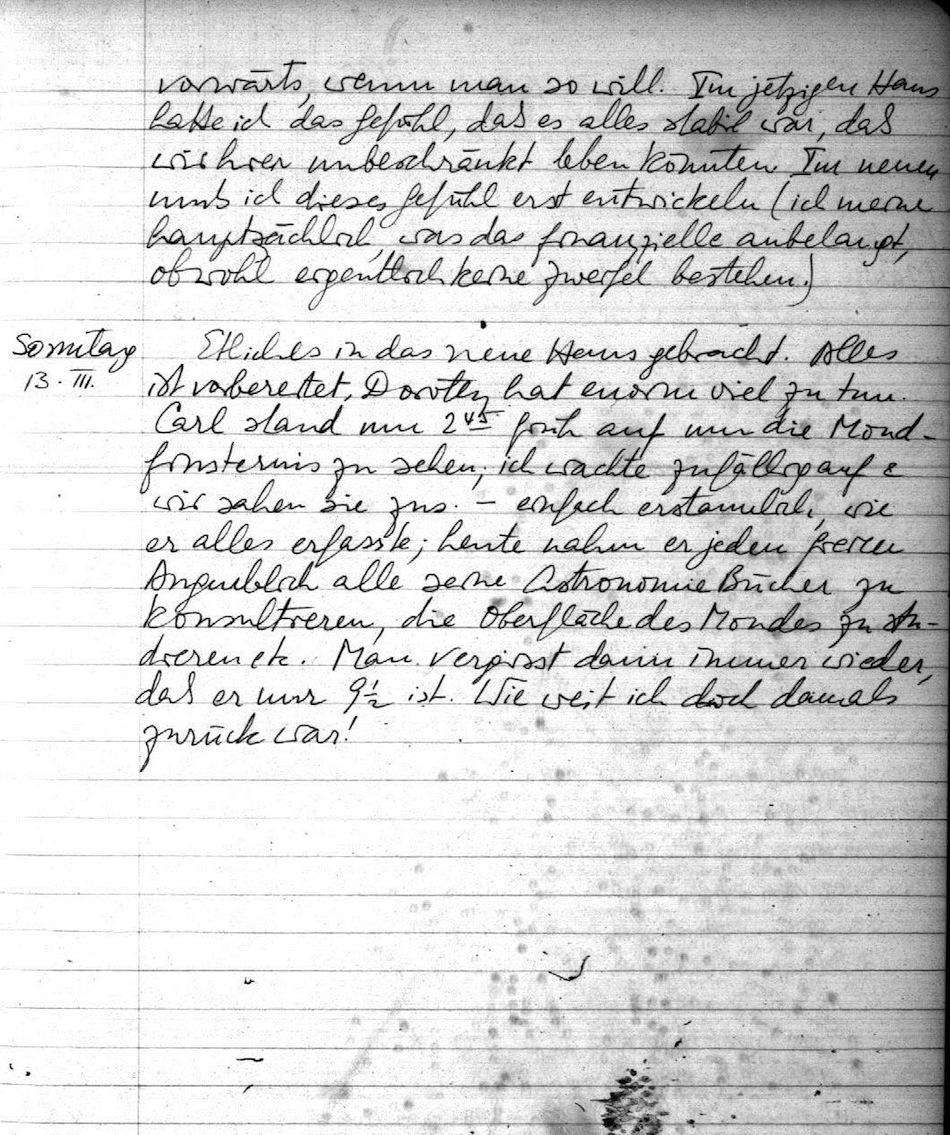 vorwärts, wenn man so will. Im jetzigen Haus
hatte ich das Gefühl, daß es alles stabil war, daß
wir hier unbeschränkt leben könnten. Im neuen
muß ich dieses Gefühl erst entwickeln (ich meine
hauptsächlich, was das finanzielle anbelangt,
obwohl eigentlich keine Zweifel bestehen.)
Sonntag
13. III.
Etliches in das neue Haus gebracht. Alles
ist vorbereitet, Dorothy hat enorm viel zu tun.
Carl stand um 2 45 früh auf um die Mond-
finsternis zu sehen; ich wachte zufällig auf &
wir sahen sie zus. – einfach erstaunlich, wie
er alles erfasste; heute nahm er jeden freien
Augenblick alle seine Astronomie Bücher zu
konsultieren, die Oberfläche des Mondes zu stu-
dieren etc. Man vergisst dann immer wieder,
daß er nur 9½ ist. Wie weit ich doch damals
zurück war!